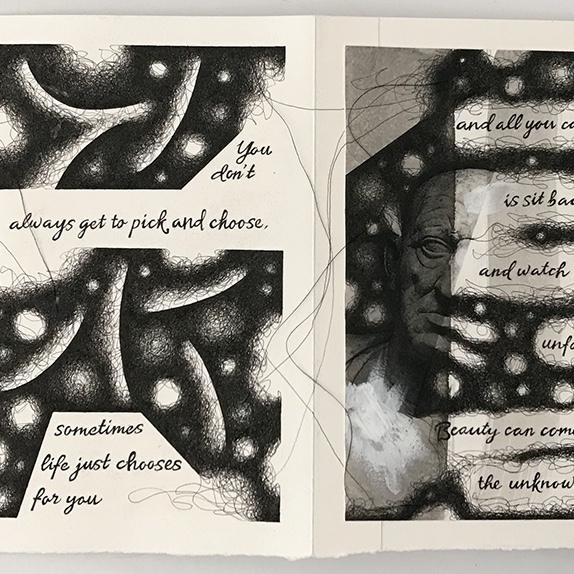 You
don't
always get to pick and choose,
sometimes
life just chooses
for you
and all you
is sit
and watch
Beauty can
the